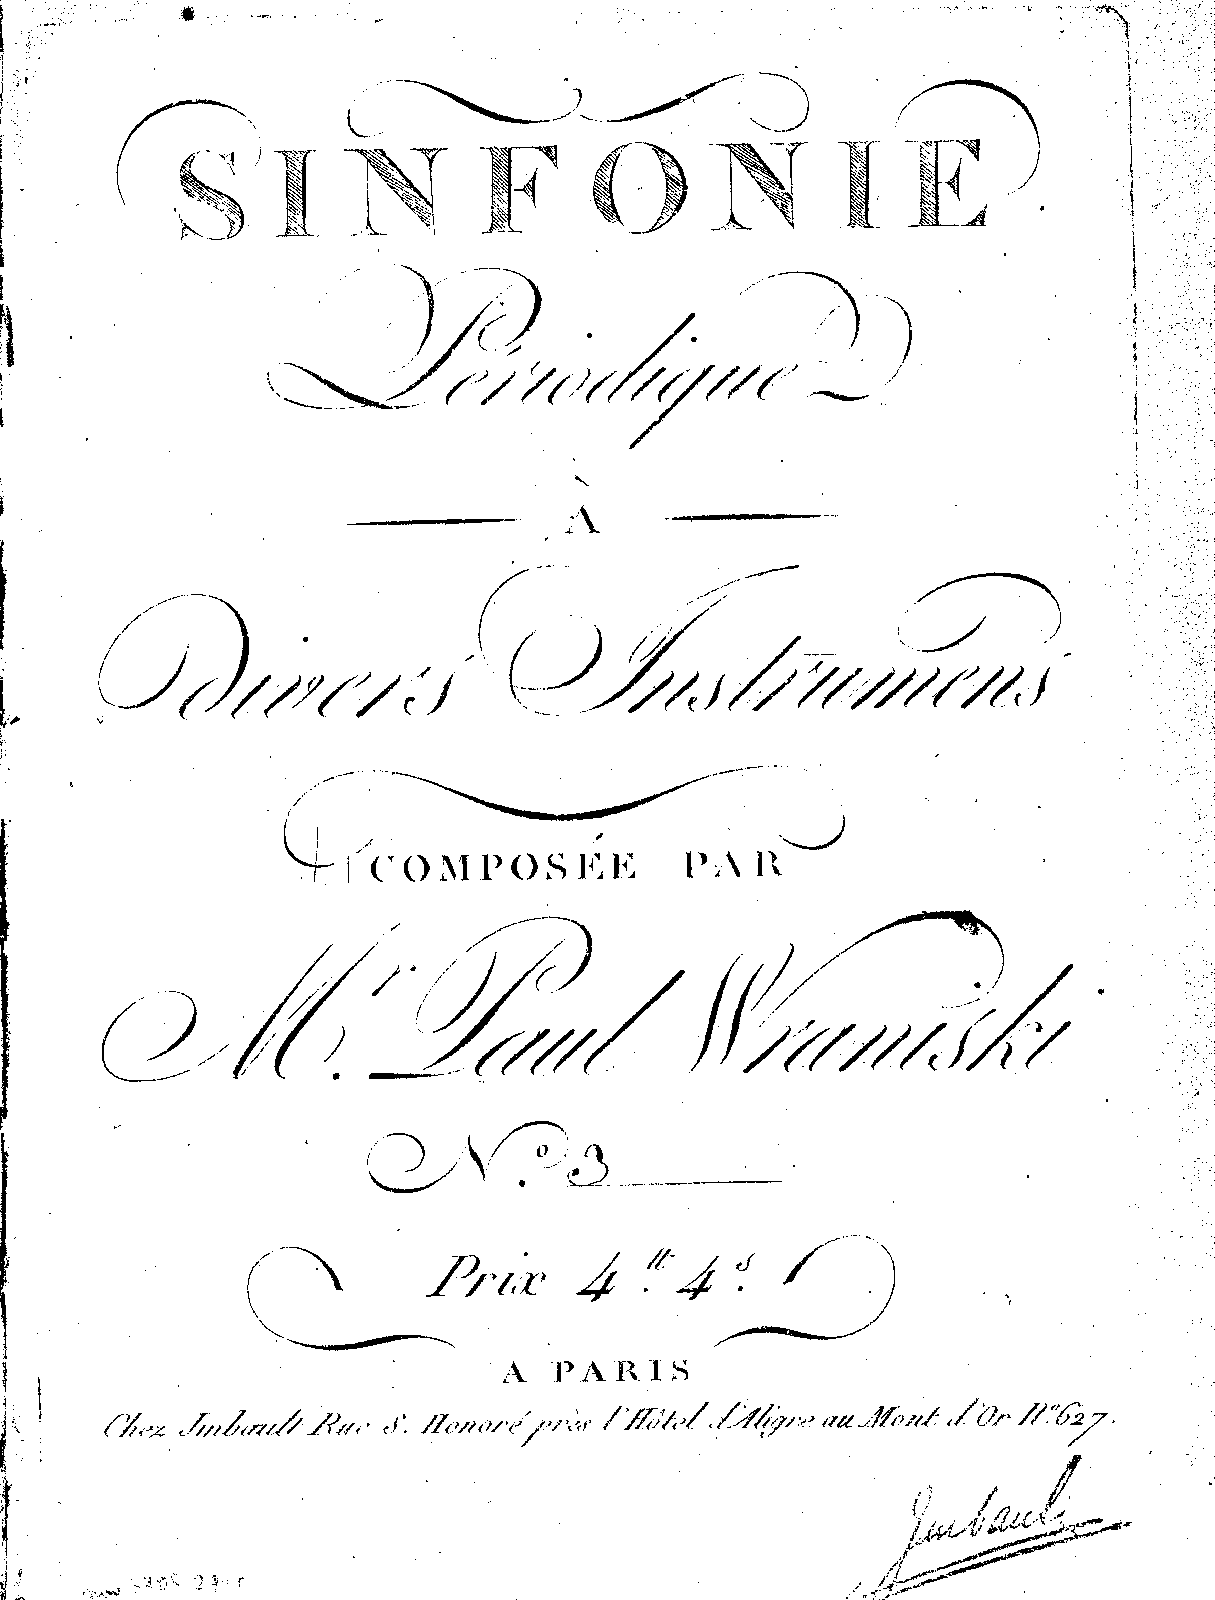 SINFONIE
Périodique
À
Divers Instrumens
COMPOSÉE PAR
M.r Paul Wraniski
N.o 3
Prix 4.tt 4.s
A PARIS
Chez Imbault Rue S. Honoré près l'Hôtel d'Aligre au Mont d'Or No. 627.
Imbault